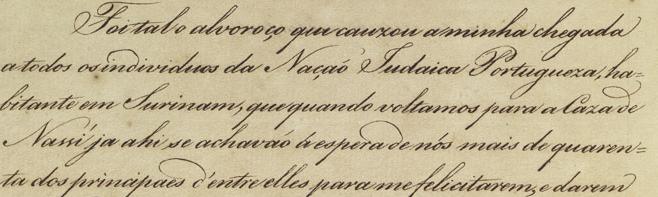 Foi tal o alvoroço que cauzou a minha chegada
a todos os individuos da Nação Judaica Portugueza, ha=
bitante em Surinam, que quando voltamos para a Caza de
Nassi ja ahi se achavaó á espera de nós mais de quaren=
ta dos principaes d'entre elles para me felicitarem, e darem